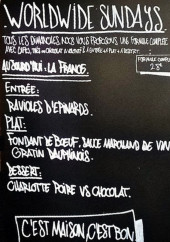 WORLDWIDE SUNDAYS.
TOUS LES DIMANCHES, NOUS VOUS PROPOSONS UNE FORMULE COMPLÈTE
AVEC CAFÉS,
FORMULE COMPLÈTE
AUJOURD'HUI : LA FRANCE.
ENTRÉE:
RAVIOLES D'EPINARDS.
PLAT:
FONDANT DE BŒUF, SAUCE MARCHAND DE VIN
GRATIN DAUPHINOIS.
DESSERT:
CHARLOTTE POIRE VS CHOCOLAT.
C'EST MAISON, C'EST BON